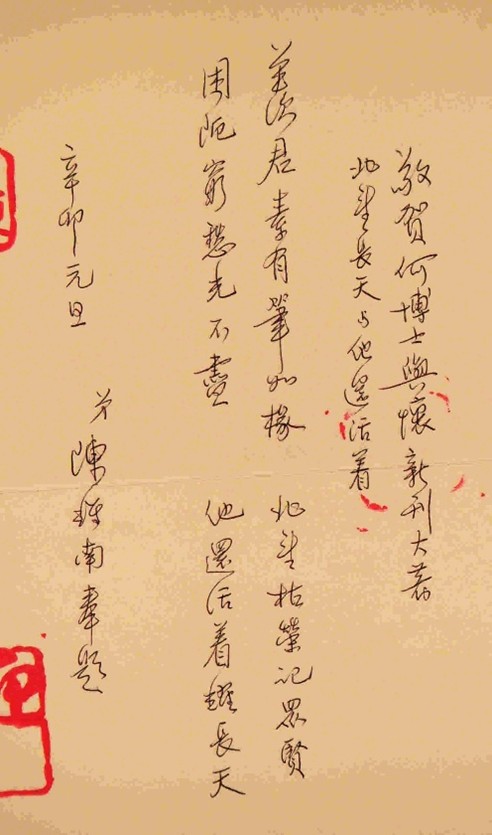 敬賀何博士與懷新刊大著
北望長天与他還活着
羨君素有筆如椽 北望枯榮記眾賢
困阨窮愁不盡 他還活着耀長天
辛卯元旦 弟陳南奉題